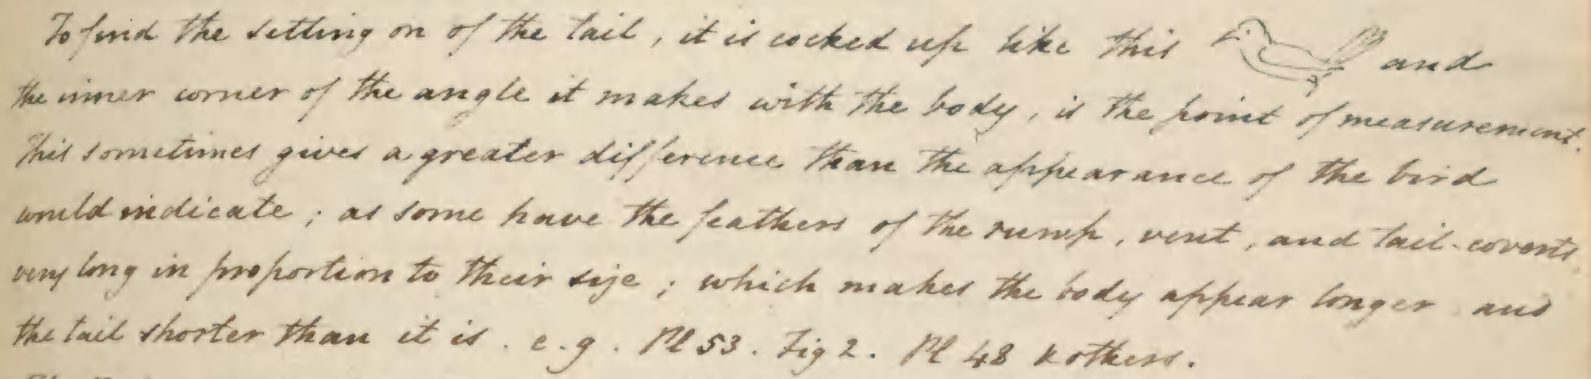 To find the setting on of the tail, it is cocked up like this and
the inner corner of the angle it makes with the body, is the point of measurement.
This sometimes gives a greater difference than the appearance of the bird
would indicate; as some have the feathers of the rump, vent, and tail-coverts,
very long in proportion to their size; which makes the body appear longer and
the tail shorter than it is. e.g. Pl 53. Fig 2. Pl 48 & others.